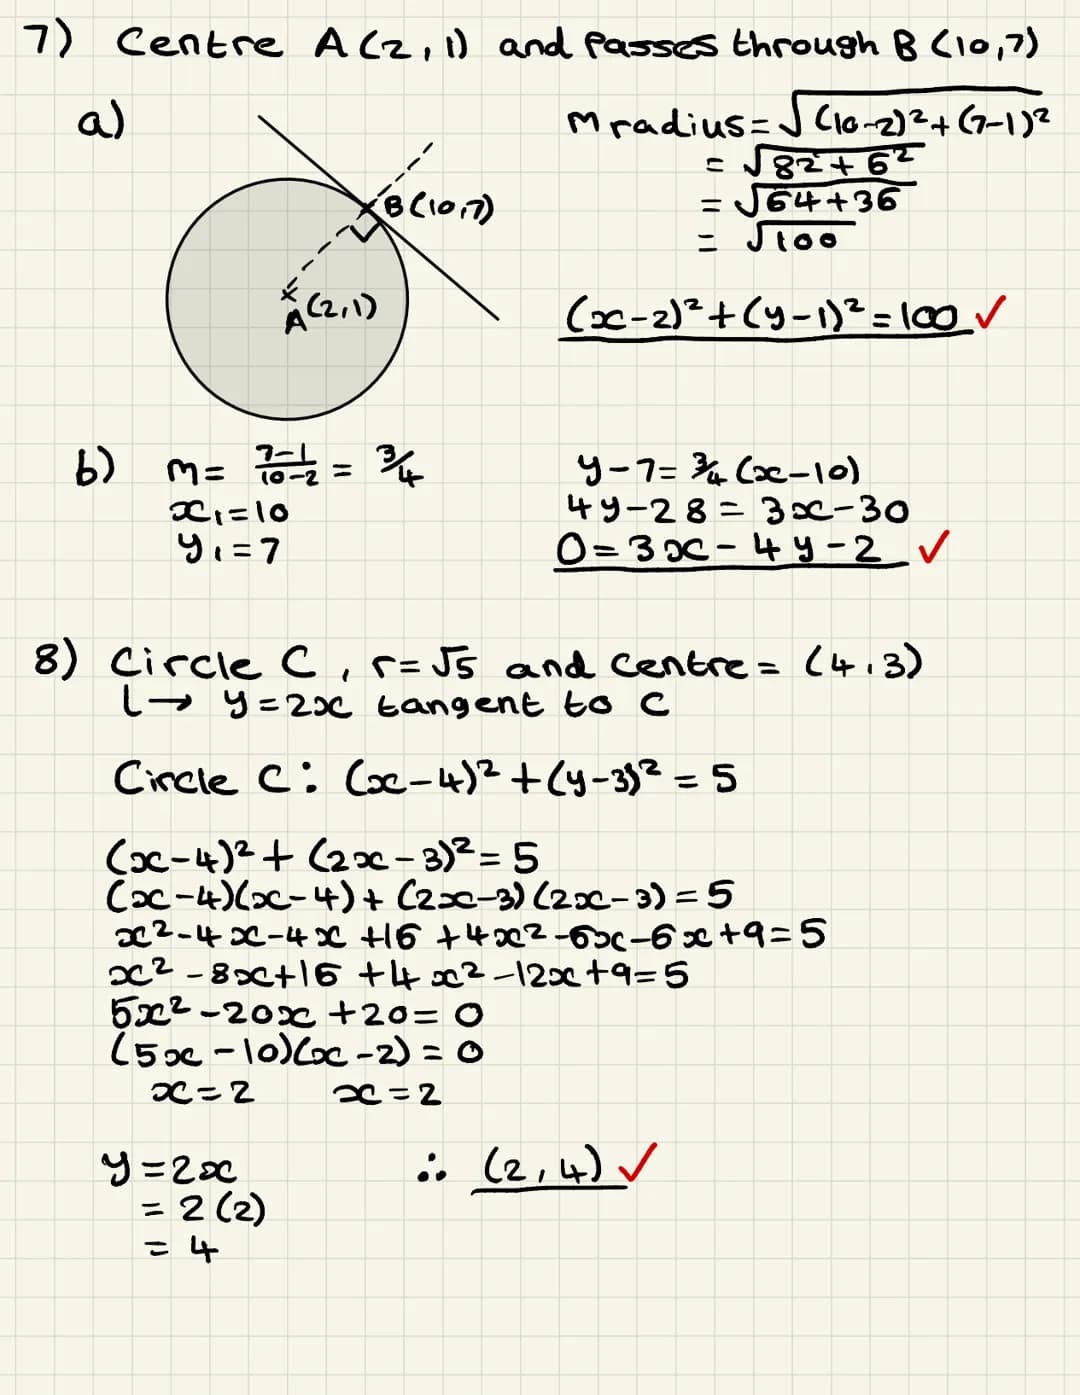 7) Centre A(2,1) and passes through B(10,7)
a)
B(10,7)
A(2,1)
m radius = √(10-2)²+(7-1)²
= √8²+6²
= √64+36
= √100
(x-2)²+(y-1)²=100 ✓
b) m = 7-1/10-2 = 3/4
x₁=10
y₁=7
y-7=3/4(x-10)
4y-28=3x-30
0=3x-4y-2 ✓
8) Circle C, r=√5 and centre = (4,3)
l→ y=2x tangent to C
Circle C: (x-4)²+(y-3)²=5
(x-4)²+(2x-3)²=5
(x-4)(x-4)+(2x-3)(2x-3)=5
x²-4x-4x+16+4x²-6x-6x+9=5
x²-8x+16+4x²-12x+9=5
5x²-20x+20=0
(5x-10)(x-2)=0
x=2 x=2
y=2x ∴ (2,4) ✓
= 2(2)
= 4